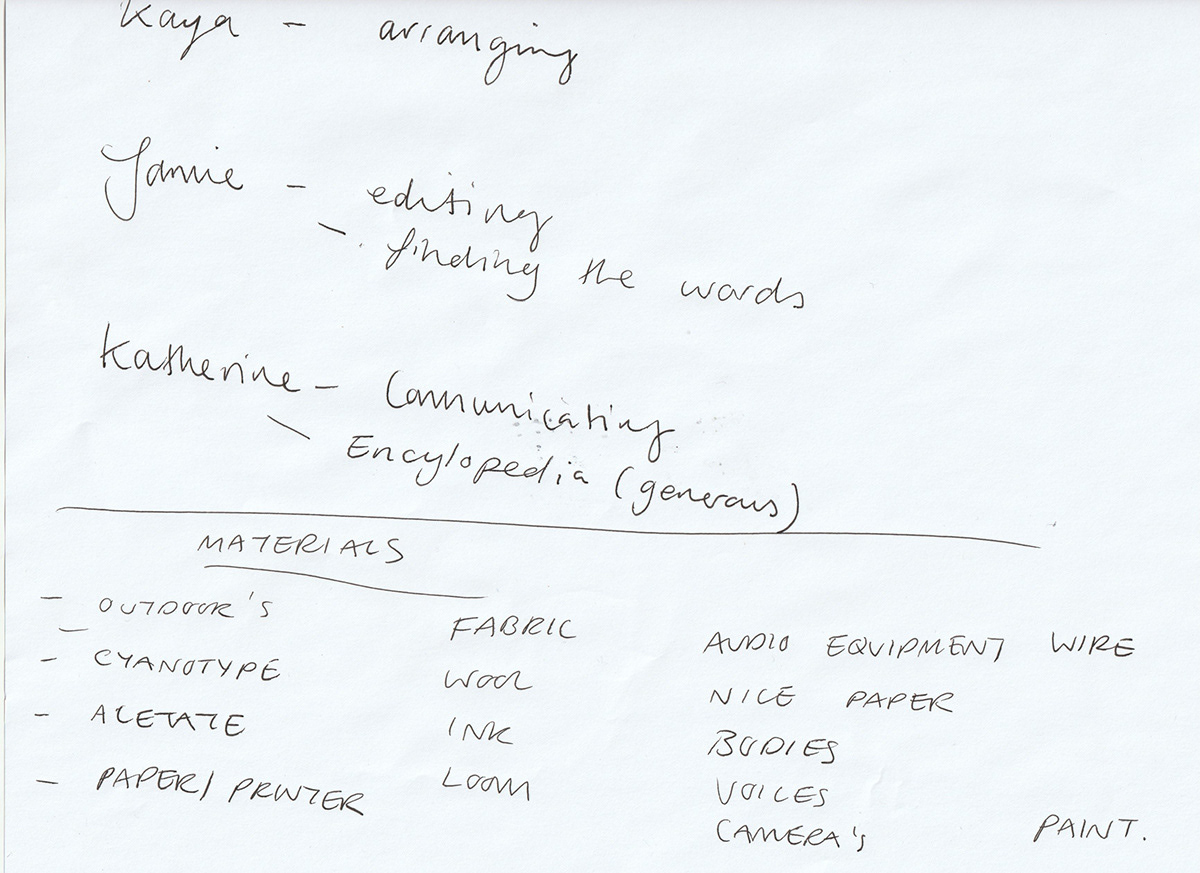 Kaya - arranging
Jamie - editing
- finding the words
Katherine - Communicating
\ Encylopedia (generous)
MATERIALS
- OUTDOOR'S
- CYANOTYPE
- ACETATE
- PAPER/PRINTER
FABRIC
WOOL
INK
LOOM
AUDIO EQUIPMENT WIRE
NICE PAPER
BODIES
VOICES
CAMERA'S PAINT.